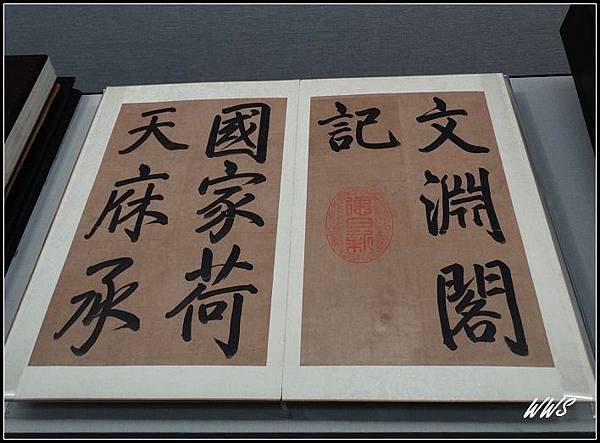 文淵閣
記
德日新
國家荷
天庥承
WWS